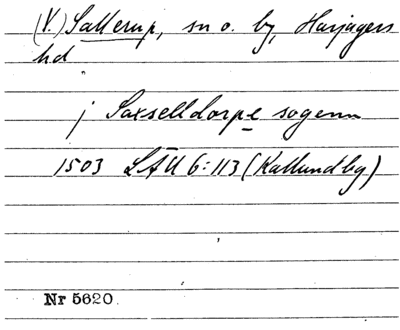 (V.) Sallerup, sn o. by, Harjagers
hd
j Saxselldorpe sogenn
1503 LÄU 6:113 (Katlundby)
Nr 5620